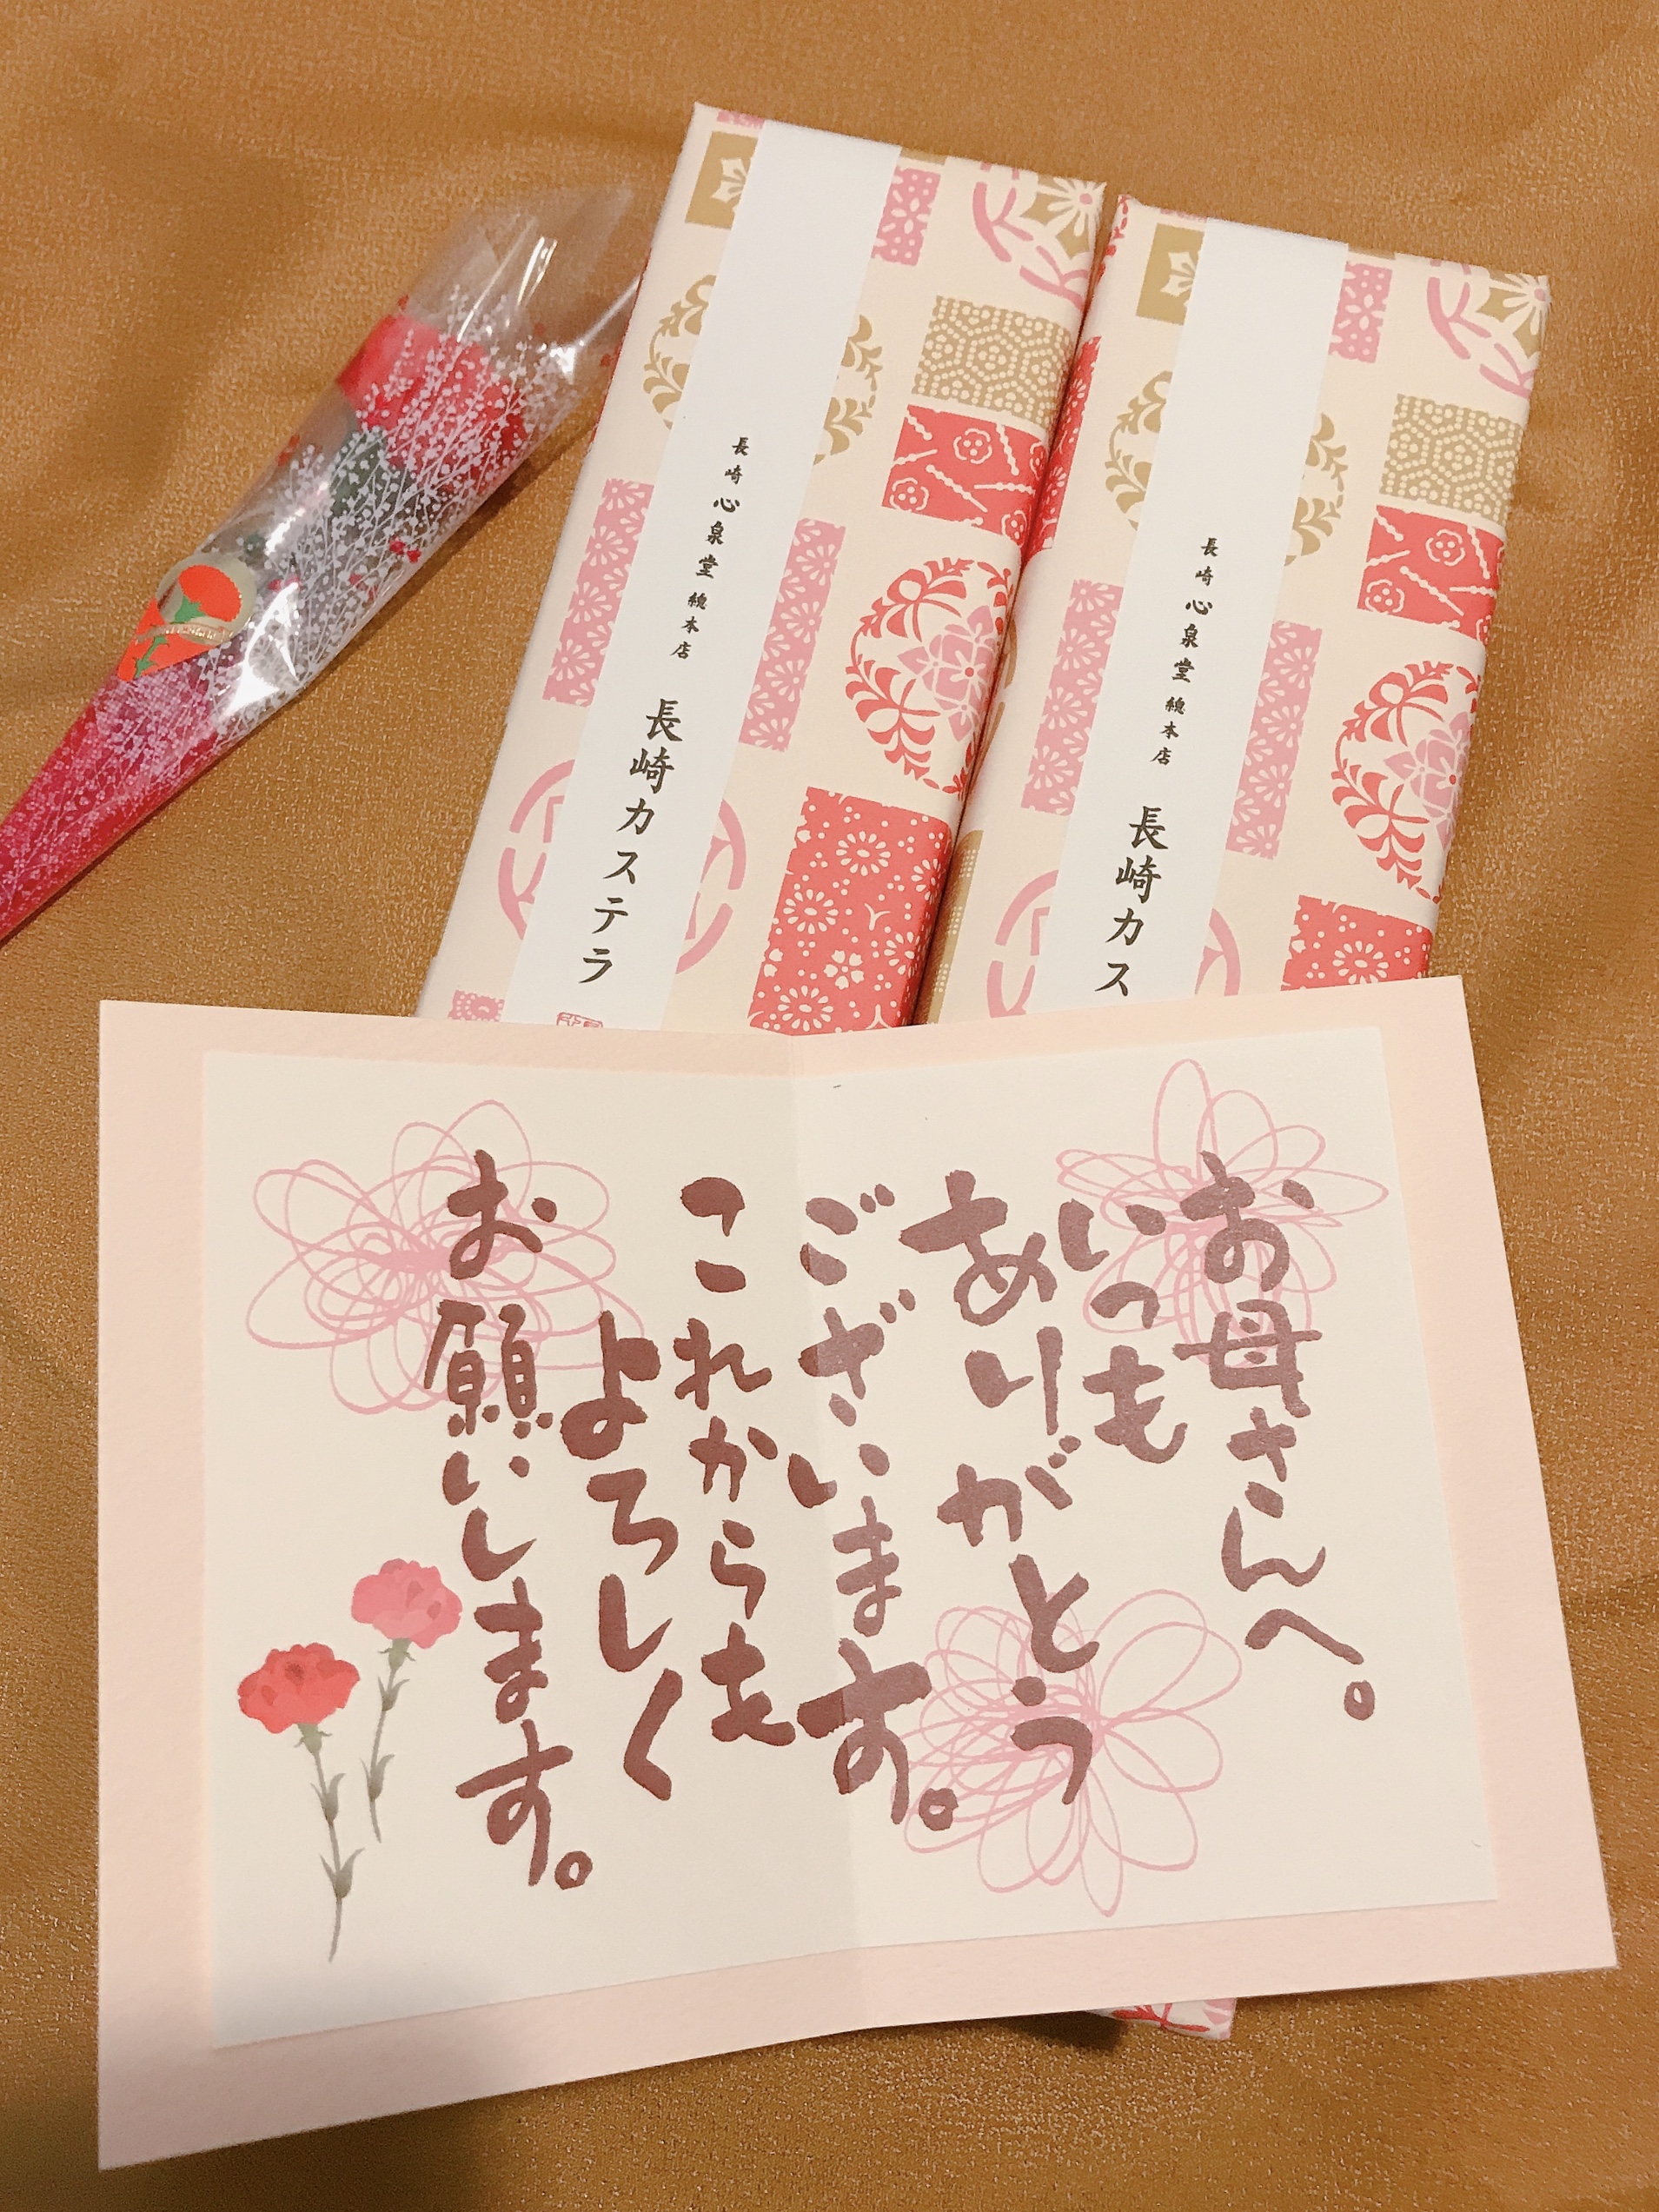 長崎心泉堂總本店
長崎カステラ
長崎心泉堂總本店
長崎カス
お母さんへ。
いつも
ありがとう
ございます。
これからも
よろしく
お願いします。